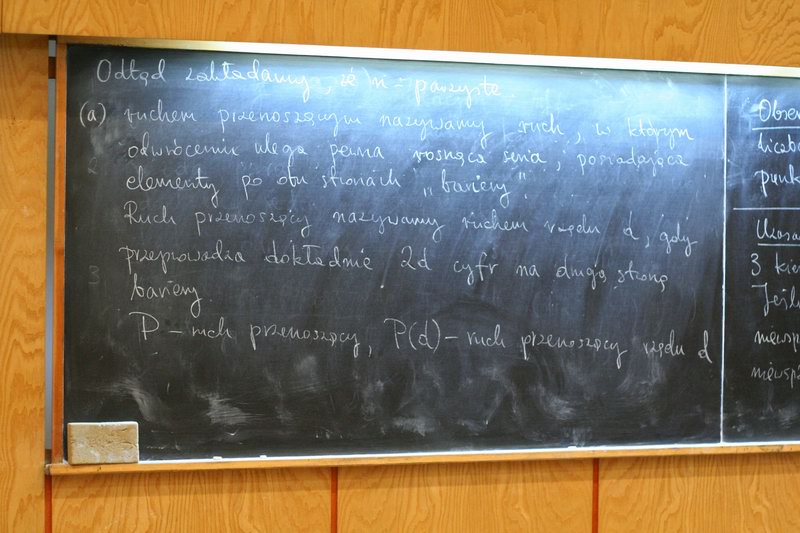 Odtąd zakładamy, że n - parzyste
(a) ruchem przenoszącym nazywamy ruch, w którym
odwróceniu ulega pewna rosnąca seria, posiadająca
elementy po obu stronach "bariery".
Ruch przenoszący nazywamy ruchem rzędu d, gdy
przeprowadza dokładnie 2d cyfr na drugą stronę
bariery.
P - ruch przenoszący, P(d) - ruch przenoszący rzędu d
Obser
liczba
punk
3 kie
Jeśli
niewsp
niewspó